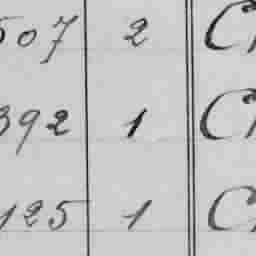 507 2 C
392 1 C
125 1 C